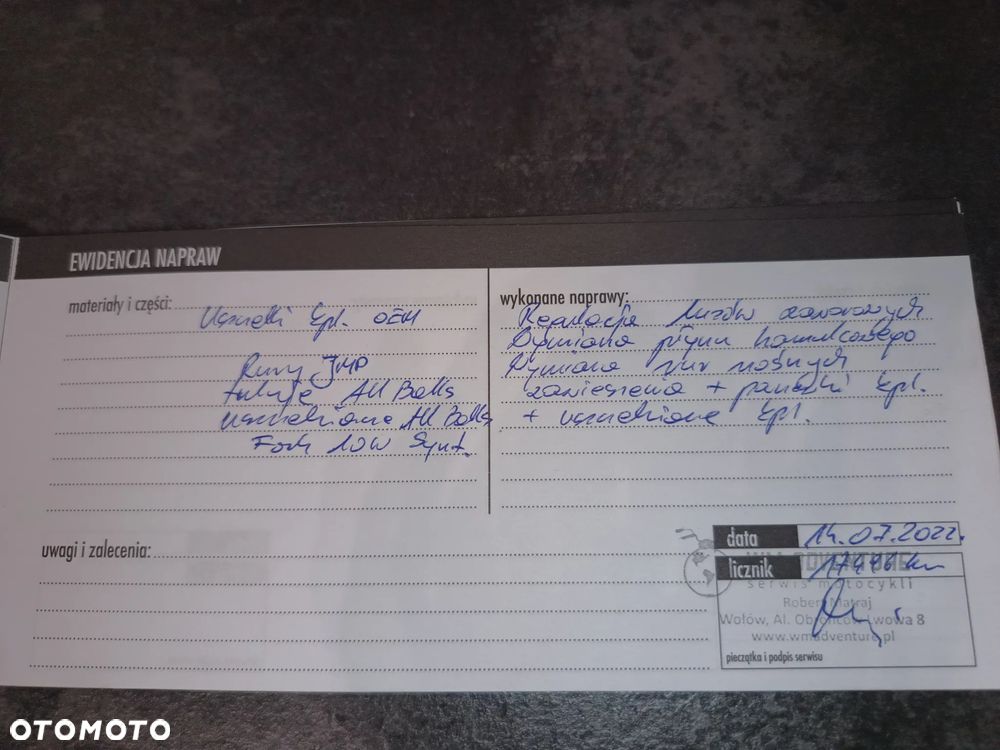 EWIDENCJA NAPRAW
materiały i części:
Uszczelki kpl. OEM
Rury JMP
tuleje All Balls
uszczelniacze All Balls
Fork 10W Synt.
wykonane naprawy:
Regulacja luzów zaworowych
Wymiana płynu hamulcowego
Wymiana rur nośnych
zawieszenia + panewki kpl.
+ uszczelniacze kpl.
uwagi i zalecenia:
data 14.07.2022r.
WM ADVENTURE
licznik km
serwis motocykli
Robert Matraj
Wołów, Al. Obrońców Lwowa 8
www.wmadventure.pl
pieczątka i podpis serwisu
OTOMOTO